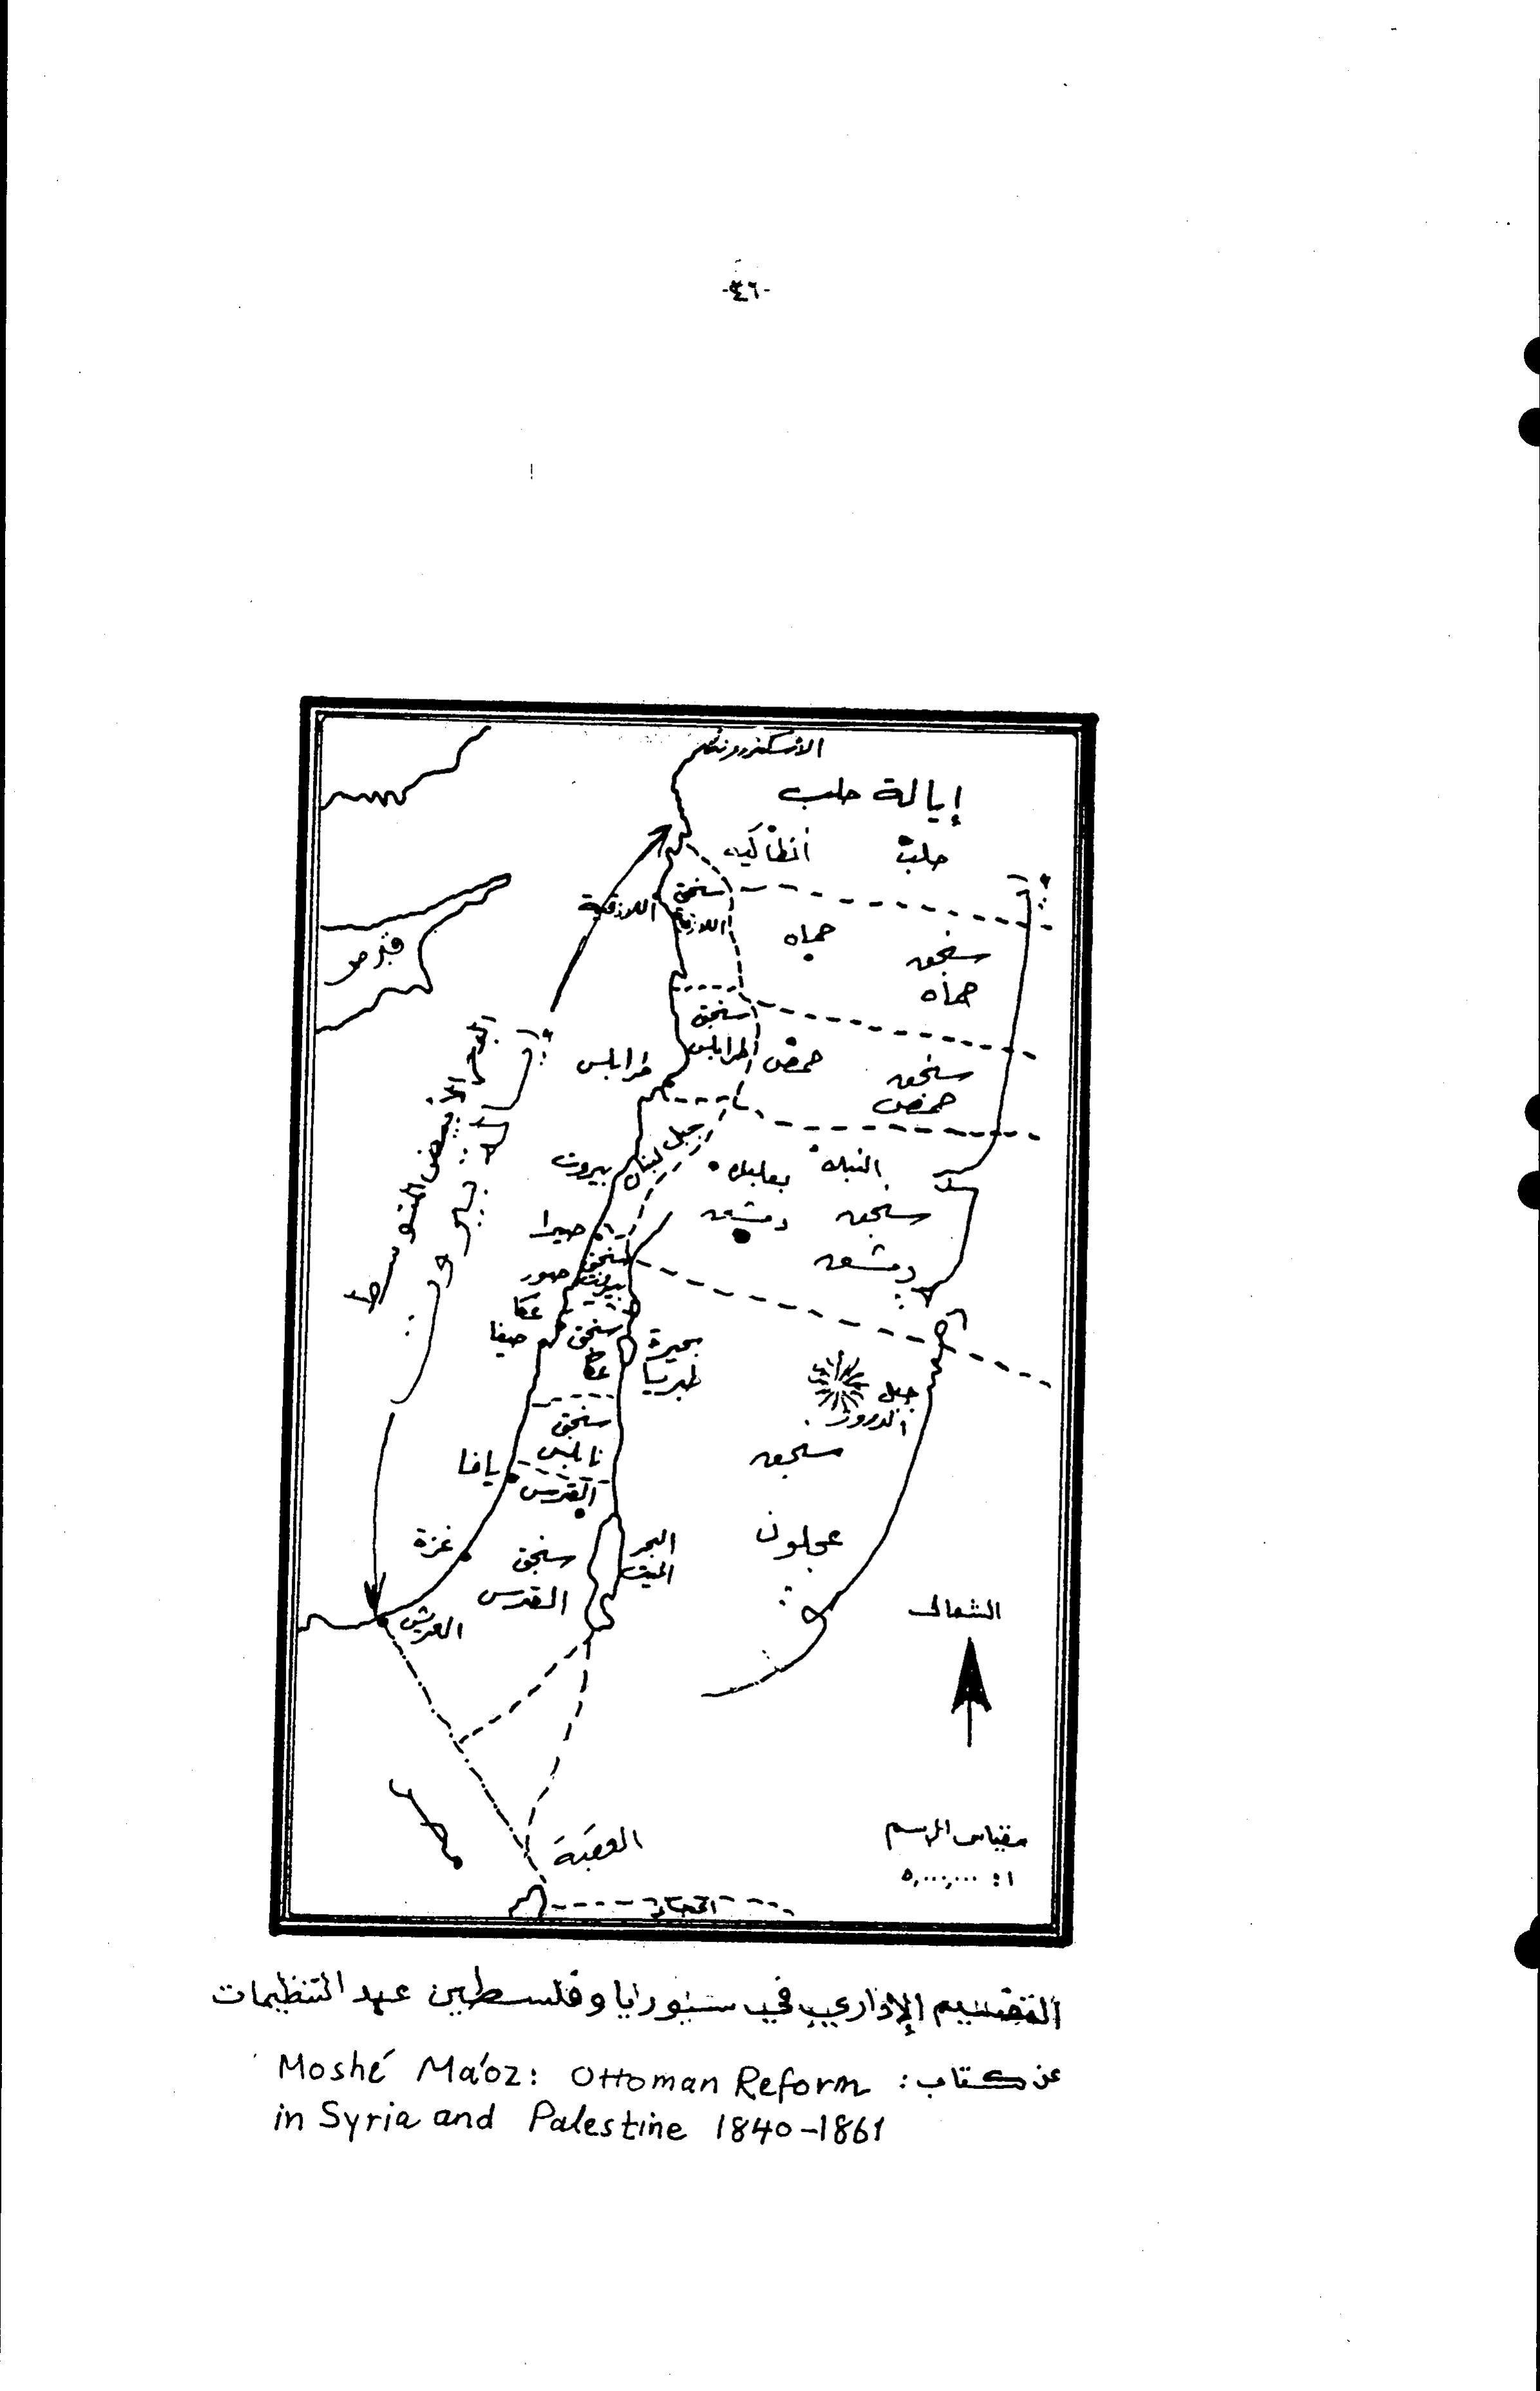 -٤٦-
الأسكندرونه
إيالة حلب
أنطاكيه
حلب
سنجق
اللاذقية
اللاذقية
حماه
سنجق
حماه
قبرص
سنجق
طرابلس
طرابلس
حمص
سنجق
حمص
البحر الأبيض المتوسط
إيالة بيروت
جبل لبنان
بيروت
بعلبك
النبك
دمشق
سنجق
دمشق
صيدا
سنجق
بيروت
صور
عكا
حيفا
سنجق
عكا
بحيرة
طبريا
جبل
الدروز
سنجق
نابلس
يافا
القدس
سنجق
عجلون
غزة
سنجق
القدس
البحر
الميت
العريش
الشمال
مصر
العقبة
مقياس الرسم
١ : ٥,٠٠٠,٠٠٠
الحجاز
التقسيم الإداري في سوريا وفلسطين عهد التنظيمات
عن كتاب : Moshé Ma'oz: Ottoman Reform
in Syria and Palestine 1840-1861